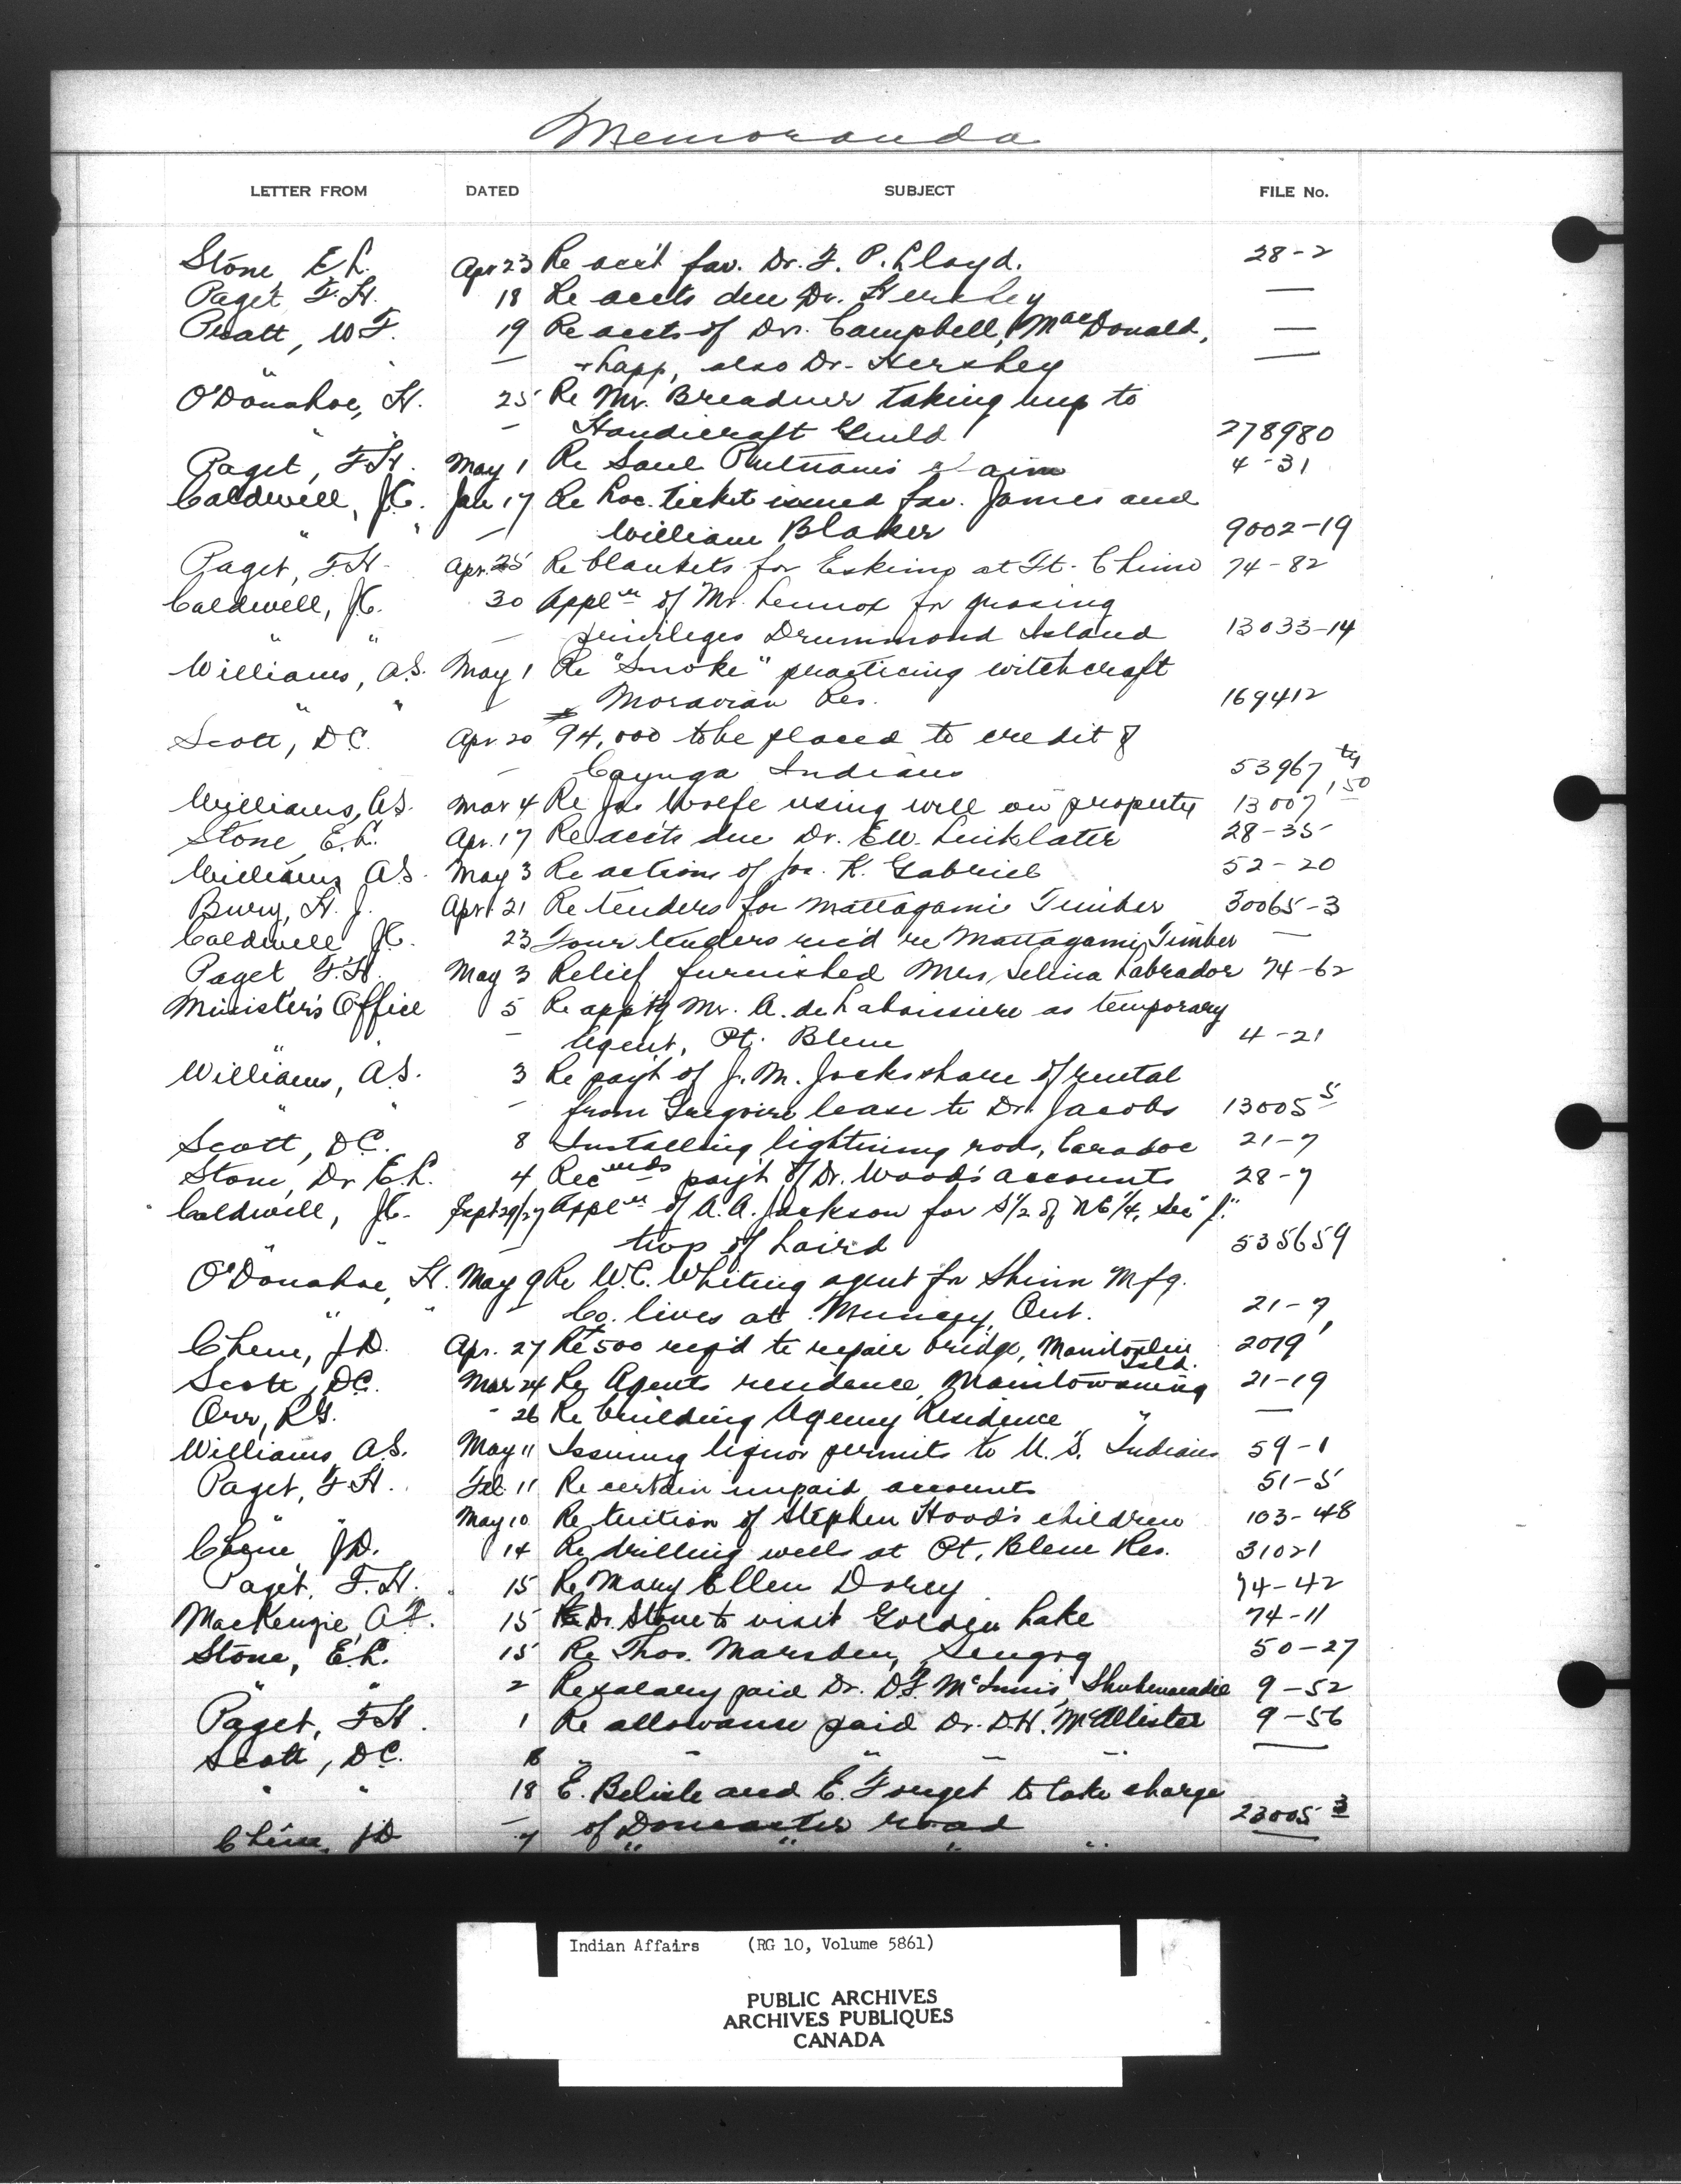 Memoranda
LETTER FROM DATED SUBJECT FILE No.
Stone, E.L. Apr 23 Re acc't fav. Dr. F. P. Lloyd. 28-2
Paget, F.H. 18 Re accts due Dr. Hershey —
Pratt, W.F. 19 Re accts of Drs. Campbell, MacDonald, —
" — + Lapp, also Dr. Hershey —
O'Donahoe, H. 25 Re Mr. Breadner taking up to
" " — Handicraft Guild 278980
Paget, F.H. May 1 Re Saul Putnam's claim 4-31
Caldwell, J.C. Jan 17 Re Loc. ticket issued fav. James and
" " — William Blaker 9002-19
Paget, F.H. Apr. 25 Re blankets for Eskimo at Ft. Chimo 74-82
Caldwell, J.C. 30 Appl'n of Mr. Lennox for grazing
" " — privileges Drummond Island 13033-14
Williams, A.S. May 1 Re "Smoke" practicing witchcraft
" " — Moravian Res. 169412
Scott, D.C. Apr. 20 $94,000 to be placed to credit of
— Cayuga Indians 53967
Williams, A.S. Mar 4 Re Jas Wolfe using well on property 13007
Stone, E.L. Apr. 17 Re accts due Dr. E.W. Linklater 28-35
Williams, A.S. May 3 Re actions of Jos. K. Gabriel 52-20
Bury, H. J. Apr. 21 Re tenders for Mattagami Timber 30065-3
Caldwell J.C. 23 Four tenders rec'd re Mattagami Timber —
Paget F.H. May 3 Relief furnished Mrs. Selina Labrador 74-62
Minister's Office 5 Re appt'g Mr. A. de Laboissiere as temporary
" " — Agent, Pt. Bleue 4-21
Williams, A.S. 3 Re pay't of J. M. Jocks share of rental
" " — from Gregoire lease to Dr. Jacobs 13005 5
Scott, D.C. 8 Installing lightning rods, Caradoc 21-7
Stone, Dr E.L. 4 Recmds pay't of Dr. Wood's accounts 28-7
Caldwell, J.C. Sept 29/27 Appl'n of A.A. Jackson for S½ of NE¼, Sec "J"
" " — twp of Laird 535659
O'Donahoe, H. May 9 Re W.C. Whiting agent for Shinn Mfg.
" " — Co. lives at Muncey, Ont. 21-7
Chene, J.D. Apr. 27 Re $500 req'd to repair bridge, Manitoulin Isld. 2019
Scott, D.C. Mar 24 Re Agents residence, Manitowaning 21-19
Orr, R.G. " 26 Re building Agency Residence " —
Williams A.S. May 11 Issuing liquor permits to U.S. Indians 59-1
Paget, F.H. Feb. 11 Re certain unpaid accounts 51-5
" " May 10 Re tuition of Stephen Hood's children 103-48
Chene, J.D. 14 Re drilling wells at Pt. Bleue Res. 31021
Paget, F.H. 15 Re Mary Ellen Dorey 74-42
MacKenzie, A.F. 15 Re Dr. Stone to visit Golden Lake 74-11
Stone, E.L. 15 Re Thos. Marsden, Scugog 50-27
" " 2 Re salary paid Dr. D.F. McInnis, Shubenacadie 9-52
Paget, F.H. 1 Re allowance paid Dr. D.H. McAllister 9-56
Scott, D.C. " — " — " —
" " 18 E. Belisle and E. Forget to take charge
— of Doncaster road 23005 3
Chene, J.D. 7 " " " " —
Indian Affairs (RG 10, Volume 5861)
PUBLIC ARCHIVES
ARCHIVES PUBLIQUES
CANADA